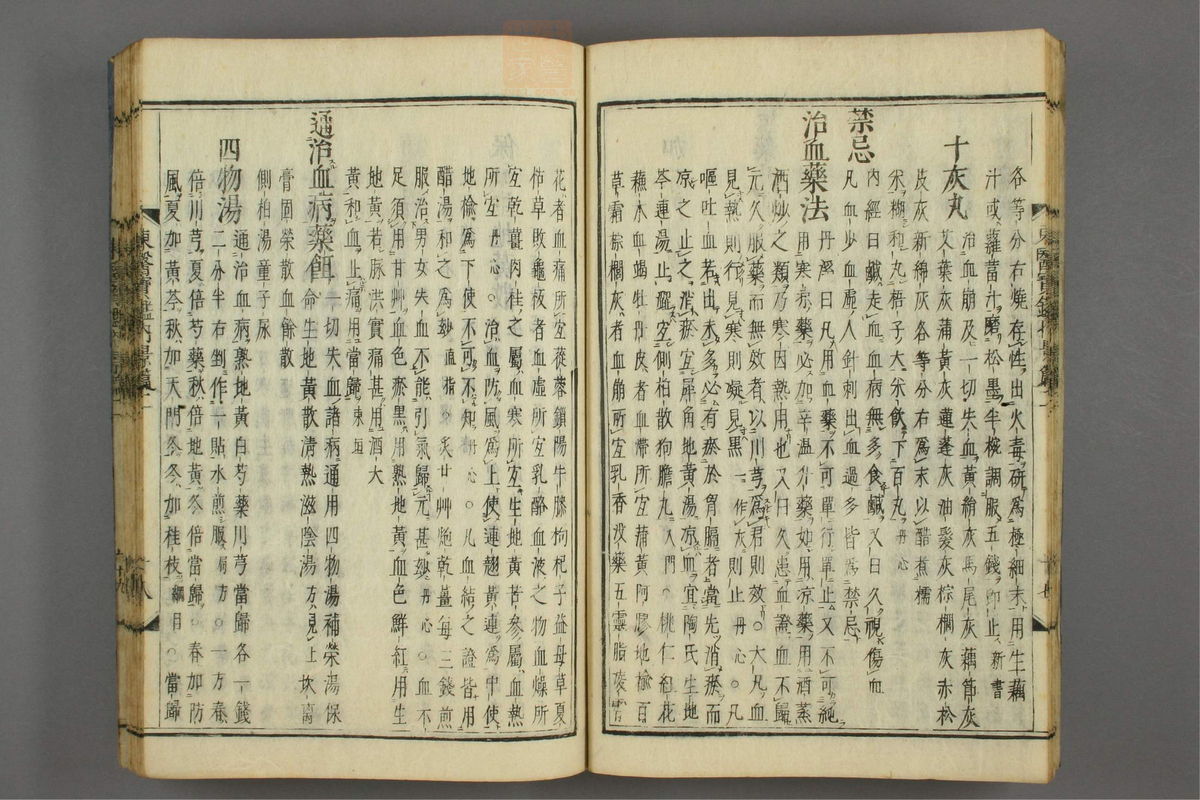 各等分右燒存性出火毒研爲極細末用生藕
汁或蘿葍汁磨松墨半椀調服五錢卽止新書
十灰丸治血崩及一切失血黃絹灰馬尾灰藕節灰
艾葉灰蒲黃灰蓮蓬灰油髮灰棕櫚灰赤松
皮灰新綿灰各等分右爲末以醋煮糯
米糊和丸梧子大米飮下百丸丹心
禁忌
內經曰鹹走血血病無多食鹹又曰久視傷血
凡血少血虛人針刺出血過多皆爲禁忌
治血藥法
丹溪曰凡用血藥不可單行單止又不可純
用寒凉藥必加辛溫升藥如用凉藥用酒蒸
酒炒之類乃寒因熱用也又曰久患血證血不歸
元久服藥而無效者以川芎爲君則效○大凡血
見熱則行見寒則凝見黑一作灰則止丹心○凡
嘔吐血若出未多必有瘀於胃膈者當先消瘀而
凉之止之消瘀宜犀角地黃湯凉血宜陶氏生地
芩連湯止碯宜側柏散狗膽丸入門○桃仁紅花
蘇木血竭牡丹皮者血滯所宜蒲黃阿膠地楡百
草霜棕櫚灰者血崩所宜乳香沒藥五靈脂凌霄
花者血痛所宜蓯蓉鎖陽牛膝枸杞子益母草夏
枯草敗龜板者血虛所宜乳酪血液之物血燥所
宜乾薑肉桂之屬血寒所宜生地黃苦參屬血熱
所宜丹心○治血防風爲上使連翹黃連爲中使
地楡爲下使不可不知丹心○凡血結之證皆用
醋湯和之爲妙直指○炙甘艸炮乾薑每三錢煎
服治男女失血不能引氣歸元甚妙丹心○血不
足須用甘艸血色瘀黑用熟地黃血色鮮紅用生
地黃若脉洪實痛甚用酒大
黃和血止痛用當歸東垣
通治血病藥餌一切失血諸病通用四物湯補榮湯保
命生地黃散淸熱滋陰湯方見上坎离
膏固榮散血餘散
側柏湯童子尿
四物湯通治血病熟地黃白芍藥川芎當歸各一錢
二分半右剉作一貼水煎服局方○一方春
倍川芎夏倍芍藥秋倍地黃冬倍當歸○春加防
風夏加黃芩秋加天門冬冬加桂枝綱目○當歸